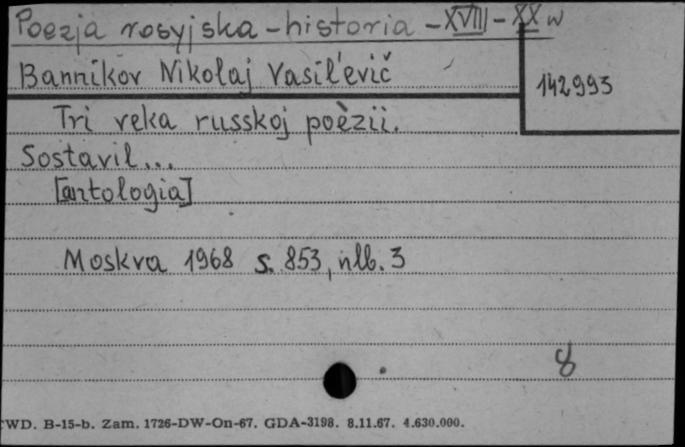 Poezja rosyjska - historia - XVIII - XX w
Bannikov Nikolaj Vasil'evič
142993
Tri veka russkoj poèzii.
Sostavil...
[antologia]
Moskva 1968 s. 853, nlb. 3
8
CWD. B-15-b. Zam. 1726-DW-On-67. GDA-3198. 8.11.67. 4.630.000.